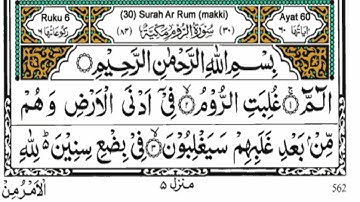 Ruku 6 (30) Surah Ar Rum (makki) Ayat 60
اٰیَاتُهَا ٦٠ (٣٠) سُوْرَةُ الرُّوْمِ مَكِّيَّةٌ (٨٤) رُكُوْعَاتُهَا ٦
بِسْمِ اللّٰهِ الرَّحْمٰنِ الرَّحِيْمِ
الٓمّٓ ۝١ غُلِبَتِ الرُّوْمُ ۝٢ فِیْۤ اَدْنَی الْاَرْضِ وَهُمْ
مِّنْۢ بَعْدِ غَلَبِهِمْ سَیَغْلِبُوْنَ ۝٣ فِیْ بِضْعِ سِنِیْنَ ؕ لِلّٰهِ
الْاَمْرُ مِنْ منزل ۵ 562